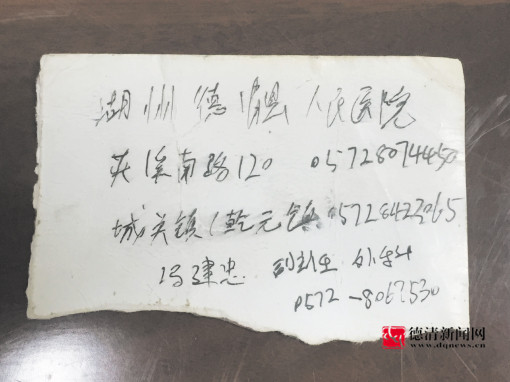 湖州德清县人民医院
英溪南路120 05728074450
城关镇(乾元镇 05728423065
冯建忠 外科
0572-8067530
德清新闻网
www.dqnews.cn